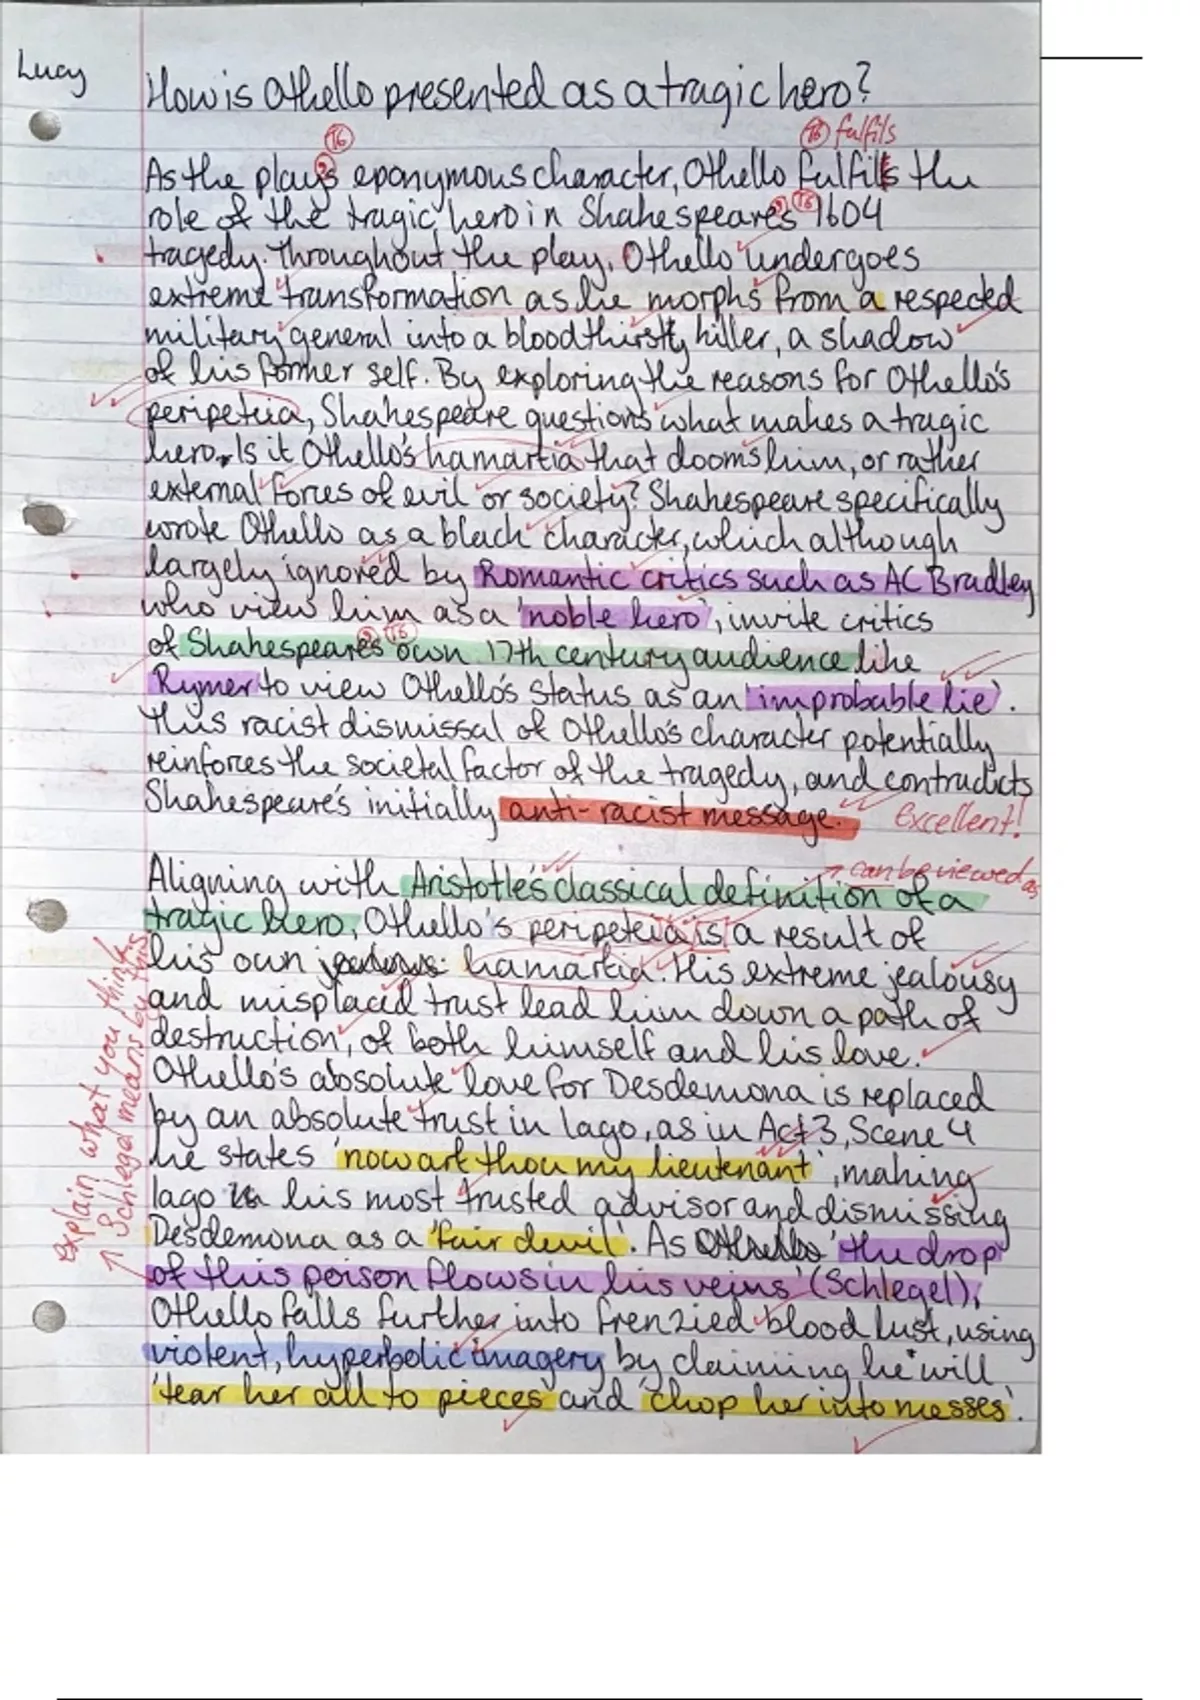 Lucy
How is Othello presented as a tragic hero?
T6
T6 fulfils
As the play's eponymous character, Othello fulfils the
role of the tragic hero in Shakespeare's 1604
T6
tragedy. Throughout the play, Othello undergoes
extreme transformation as he morphs from a respected
military general into a bloodthirsty killer, a shadow
of his former self. By exploring the reasons for Othello's
peripeteia, Shakespeare questions what makes a tragic
hero. Is it Othello's hamartia that dooms him, or rather
external forces of evil or society? Shakespeare specifically
wrote Othello as a black character, which although
largely ignored by Romantic critics such as AC Bradley
who view him as a 'noble hero', invite critics
T6
of Shakespeare's own 17th century audience like
Rymer to view Othello's status as an 'improbable lie'.
This racist dismissal of Othello's character potentially
reinforces the societal factor of the tragedy, and contradicts
Shakespeare's initially anti-racist message.
Excellent!
→ can be viewed as
Aligning with Aristotle's classical definition of a
tragic hero, Othello's peripeteia is a result of
his own hamartia. His extreme jealousy
and misplaced trust lead him down a path of
destruction, of both himself and his love.
Othello's absolute love for Desdemona is replaced
by an absolute trust in Iago, as in Act 3, Scene 4
he states 'now art thou my lieutenant', making
Iago his most trusted advisor and dismissing
Desdemona as a 'fair devil'. As 'the drop
of this poison flows in his veins' (Schlegel),
Othello falls further into frenzied blood lust, using
violent, hyperbolic imagery by claiming he will
'tear her all to pieces' and 'chop her into messes'.
explain what you think
↑ Schlegel means by this